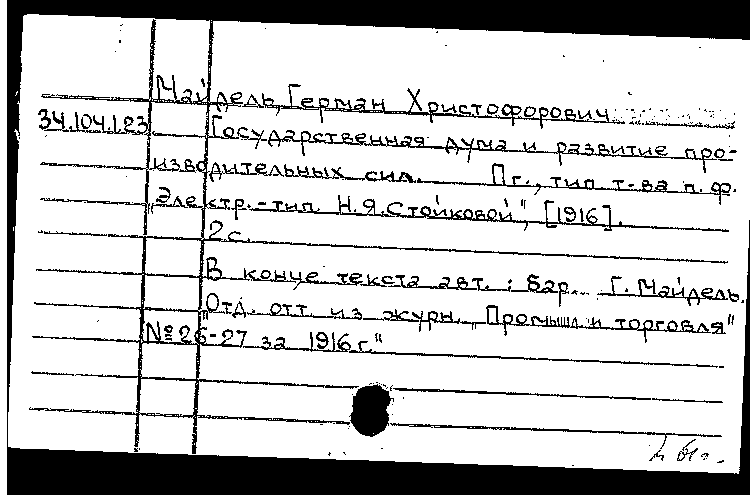 Майдель, Герман Христофорович
34.104.1.23 Государственная дума и развитие про-
изводительных сил. Пг., тип. т-ва п. ф.
„Электр.-тип. Н.Я.Стойковой", [1916].
2 с.
В конце текста авт.: бар. Г. Майдель.
"Отд. отт. из журн. „Промышл. и торговля"
№ 26-27 за 1916 г."